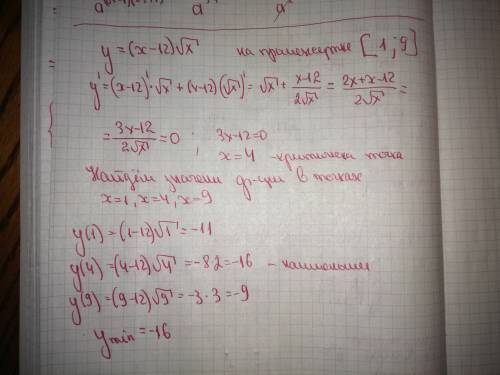 y = (x-12)√x на промежутке [1; 9]
y' = (x-12)'·√x + (x-12)(√x)' = √x + (x-12)/(2√x) = (2x+x-12)/(2√x) =
= (3x-12)/(2√x) = 0 ; 3x-12=0
x=4 -критическ точка
Найдём значени ф-ции в точках
x=1, x=4, x=9
y(1) = (1-12)√1 = -11
y(4) = (4-12)√4 = -8·2 = -16 - наименьшее
y(9) = (9-12)√9 = -3·3 = -9
y min = -16